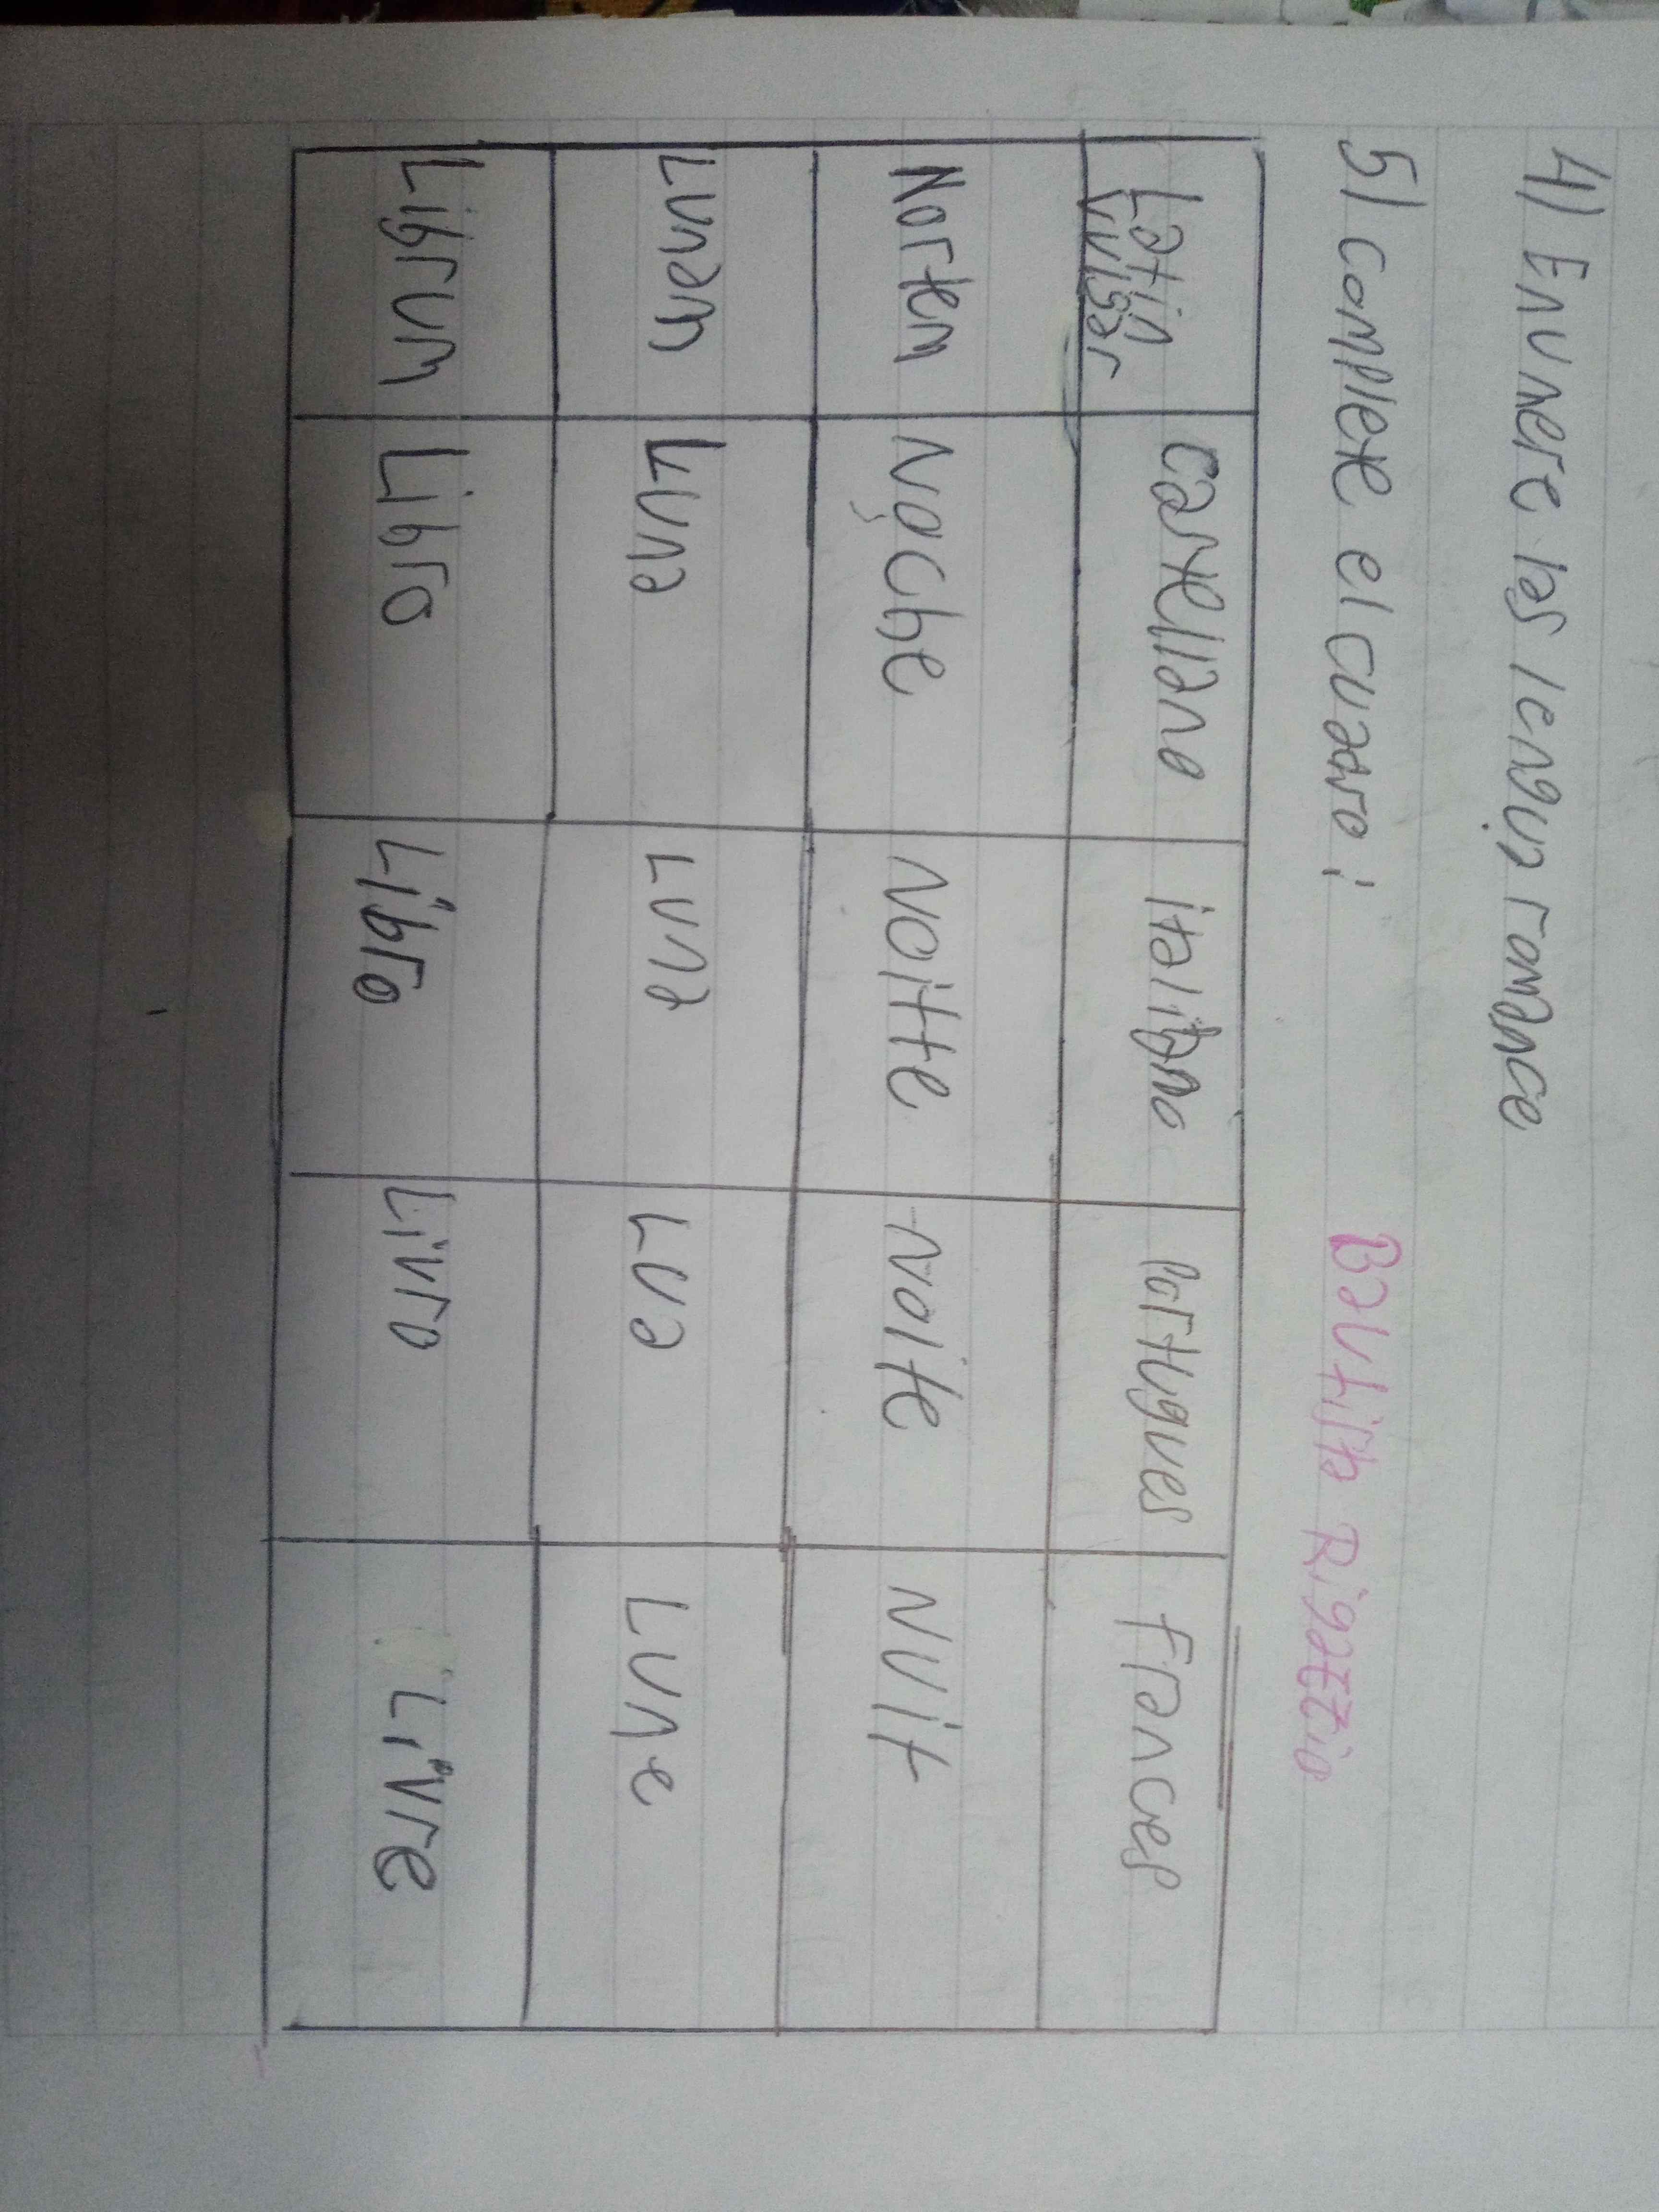 4) Enumere las lengua romance
5) complete el cuatro: Bautista Rigazzio
Latin Vulgar Castellano italiano Portugues Frances
Noctem Noche Noitte Noite Nuit
Lunam Luna Luna Lua Lune
Librum Libro Libro Livro Livre